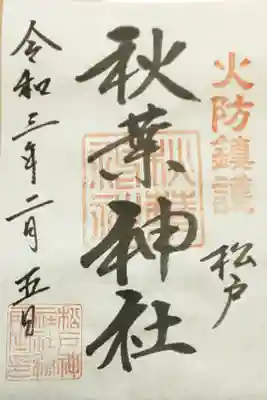 火防鎮護
松戸
秋葉神社
令和三年二月五日